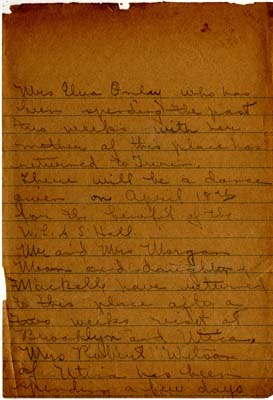 2
Mrs Elva Onley who has
been spending the past
two weeks with her
mother at this place has
returned to Turin.
There will be a dance
given on April 18th
for the benefit of the
W. C. A. S. Hall
Mr and Mrs Morgan
and daughter
have returned
to this place after a
two weeks visit at
Brooklyn and Utica,
Mrs Robert Wilson
of Utica has been
spending a few days